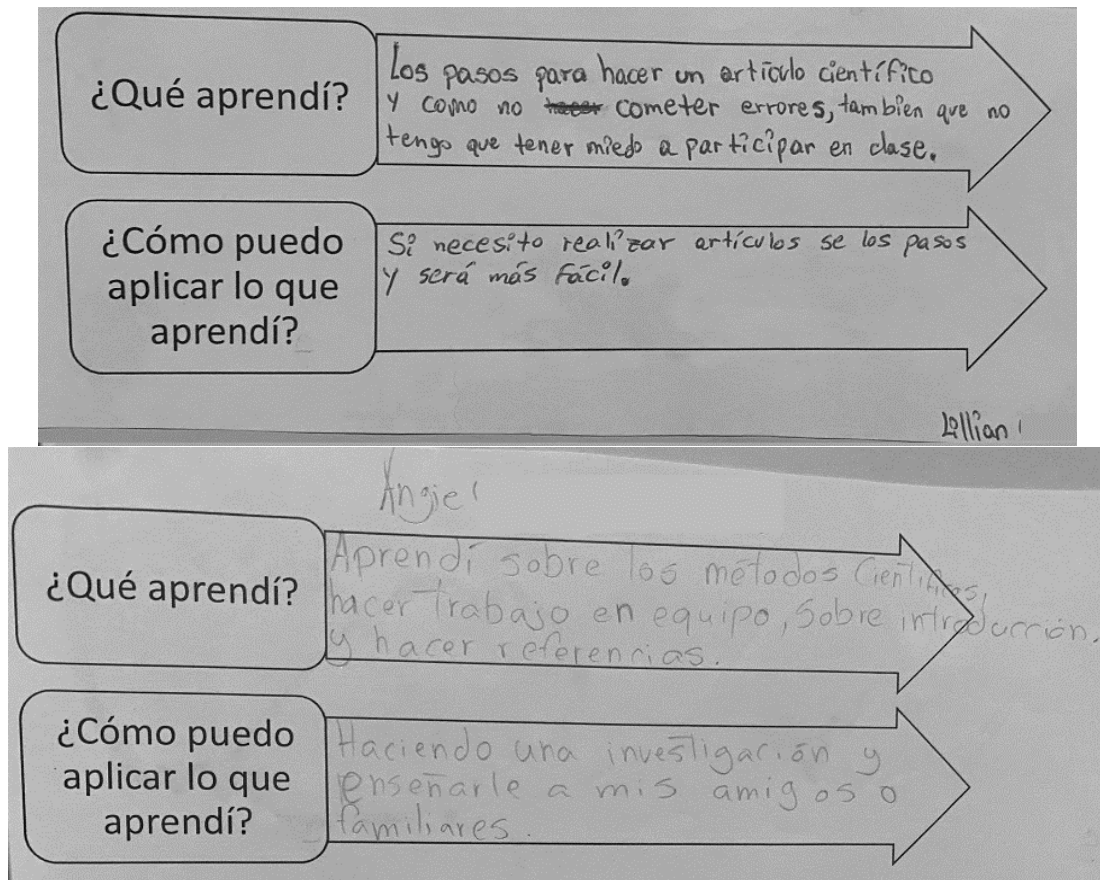 ¿Qué aprendí?
Los pasos para hacer un artículo científico
y como no cometer errores, tambien que no
tengo que tener miedo a participar en clase.
¿Cómo puedo
aplicar lo que
aprendí?
Si necesito realizar artículos se los pasos
y será más fácil.
Lillian
Angie
¿Qué aprendí?
Aprendí sobre los métodos Científicos,
hacer trabajo en equipo, Sobre introducción,
y hacer referencias.
¿Cómo puedo
aplicar lo que
aprendí?
Haciendo una investigación y
enseñarle a mis amigos o
familiares.